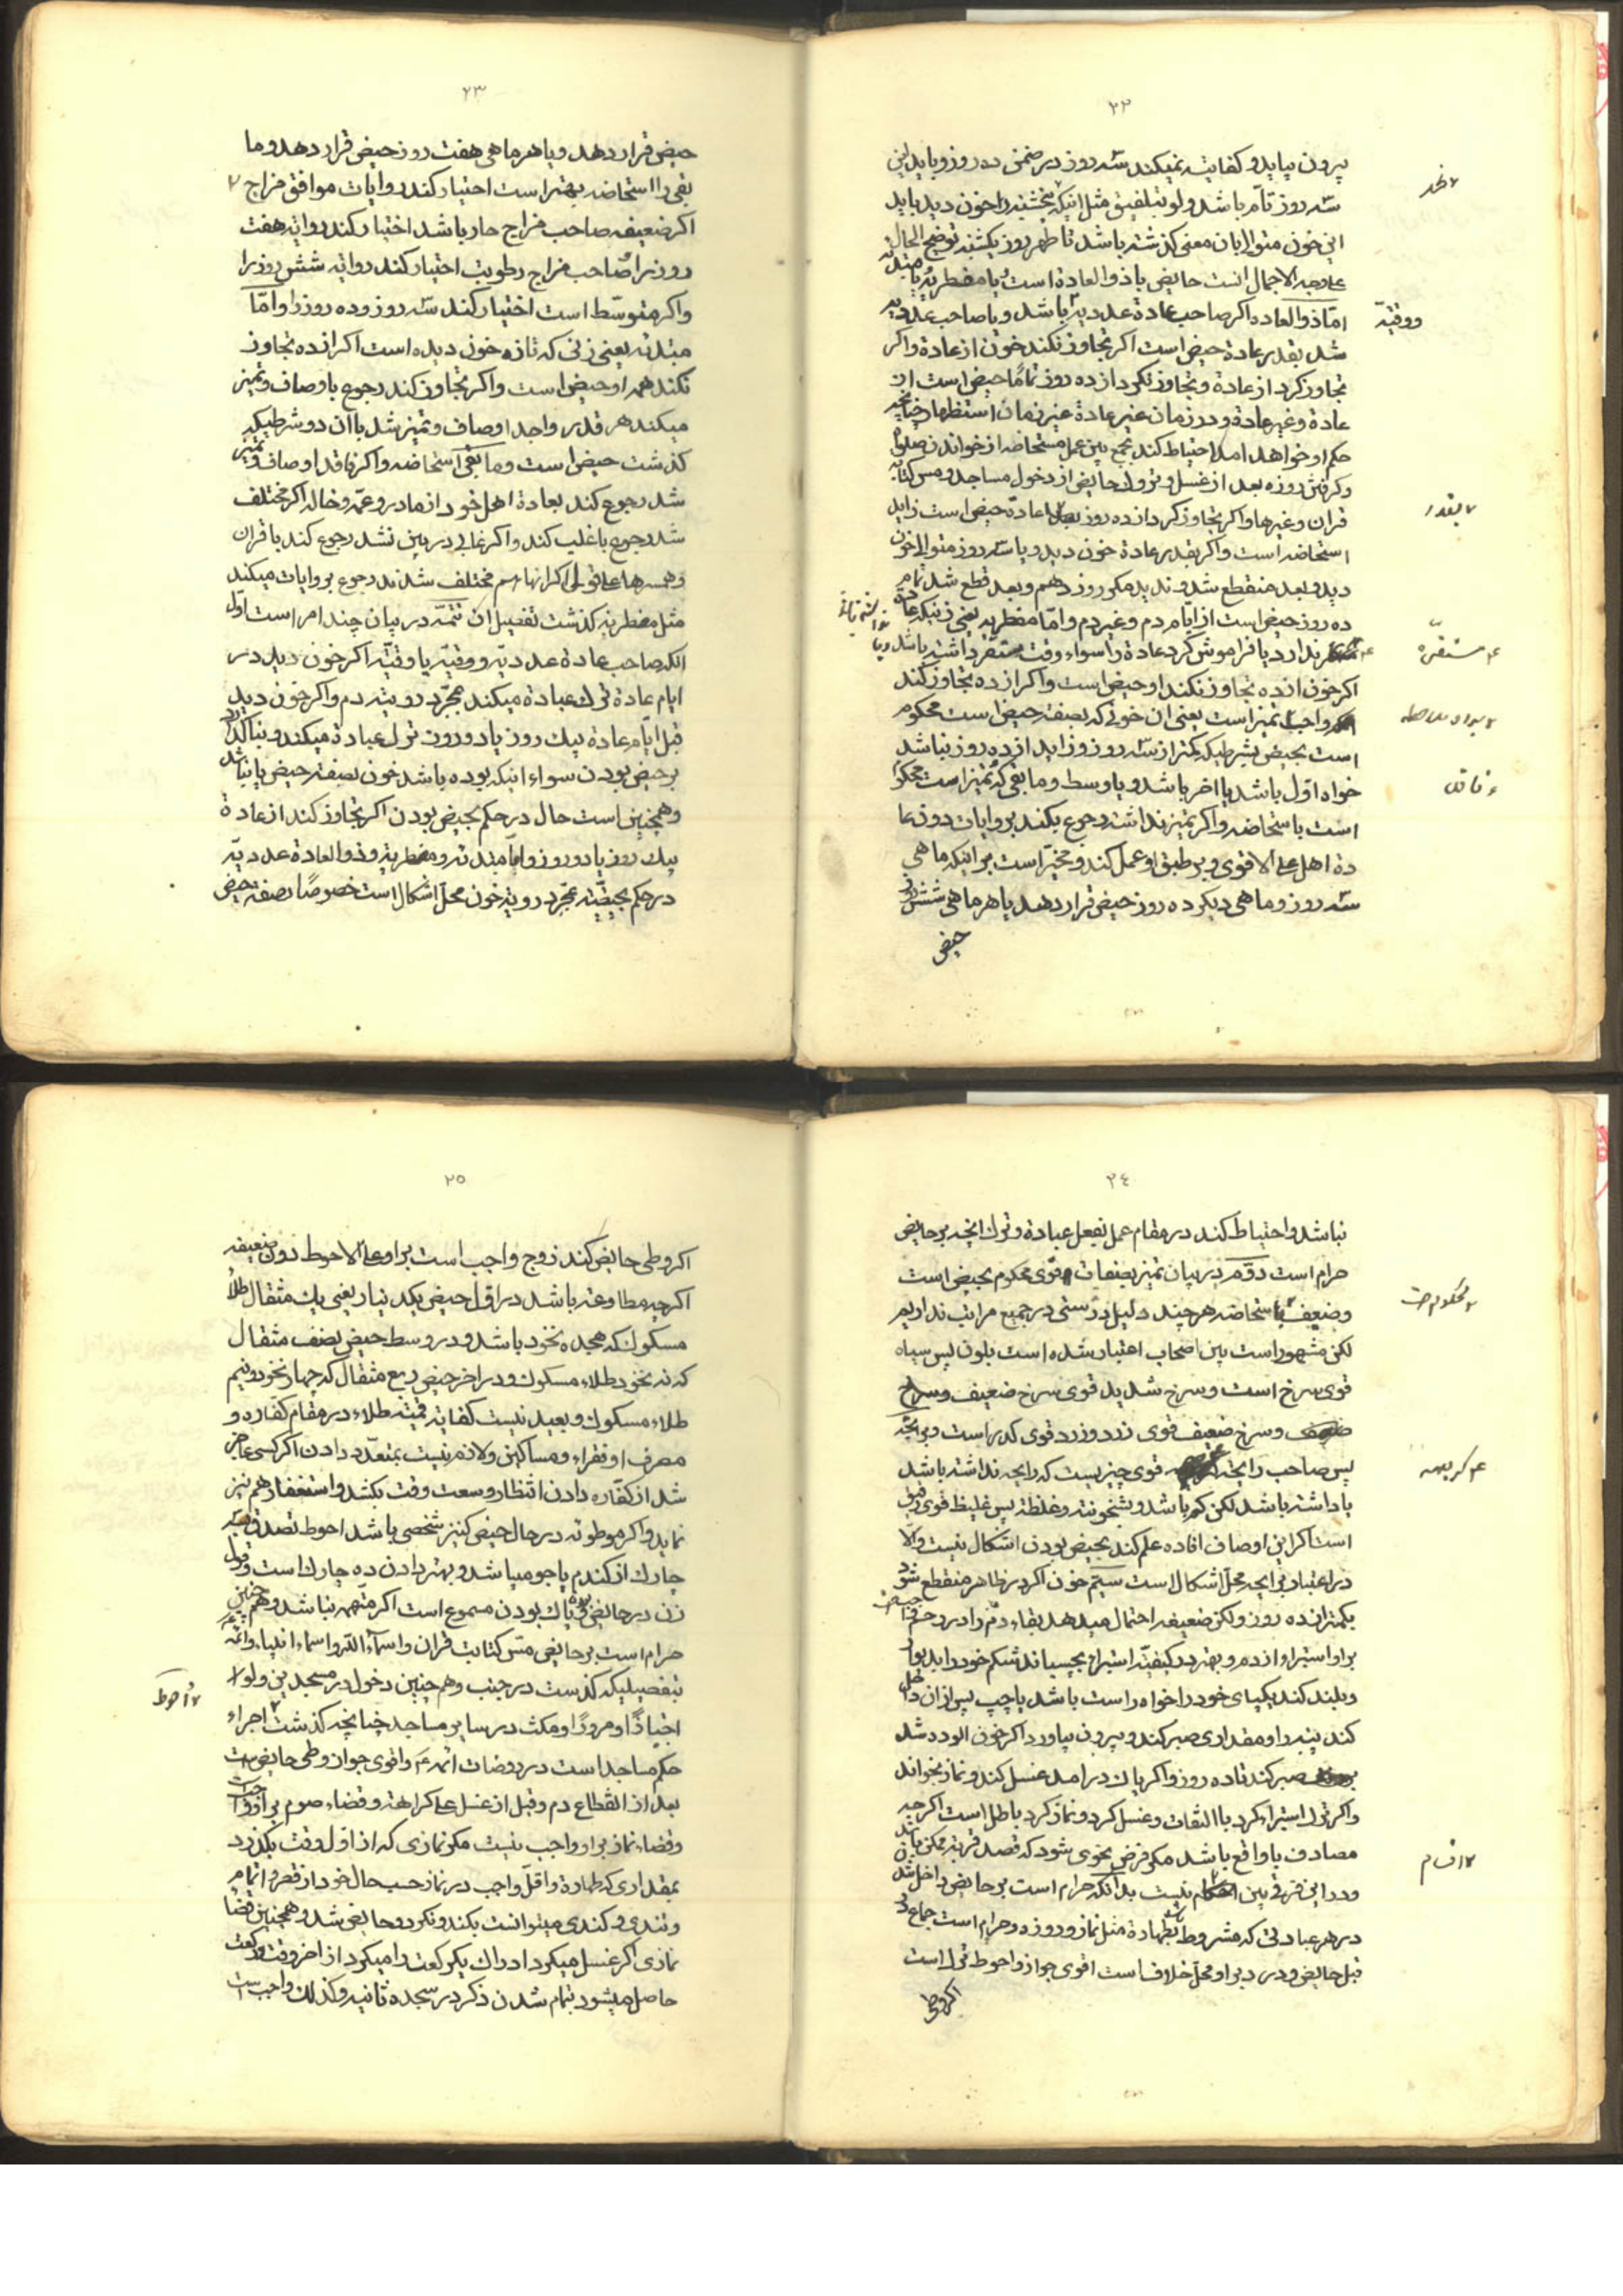 ٢٢
بیرون بیاید و کفایت نمیکند سه روز در ضمن ده روز و باید این
سه روز تام باشد ولو بتلفیق مثل اینکه پنجشنبه را خون دید باید
این خون متوالیا بان معنی کذشته باشد تا ظهر روز یکشنبه توضیح الحال
علی وجه الاجمال انست حایض یا ذوالعادة است یا مضطربه یا مبتدئه
اما ذوالعاده اکر صاحب عادة عددیه باشد و یا صاحب عددیه
ووقتیه
شد بقدر عادة حیض است اکر تجاوز نکند خون از عادة و اکر
تجاوز کرد از عادة و تجاوز نکرد از ده روز تماما حیض است از
عادة و غیر عادة و در زمان غیر عادة غیر زمان استظهار چنانچه
حکم او خواهد امد احتیاط کند بجمع بین عمل مستحاضه از خواندن صلوة
و کرفتن روزه بعد از غسل و تروك حایض از دخول مساجد و مس کتابة
قران و غیرها و اکر تجاوز کرد از ده روز عادة حیض است زاید
بقدر
استحاضه است و اکر بقدر عادة خون دید و یا سه روز متوالی خون
دید و بعد منقطع شد و ندید مکر روز دهم و بعد قطع شد تمام
ده روز حیض است از ایام دم و غیر دم و اما مضطربه یعنی زنیکه عادة
ندارد یا فراموش کرد عادة را سواء وقت مستقر داشته باشد و یا
مستقرة
اکر خون از ده تجاوز نکند او حیض است و اکر از ده تجاوز کند
واجب تمیز است یعنی ان خونی که بصفة حیض است محکوم
است بحیض بشرطیکه کمتر از سه روز و زاید از ده روز نباشد
خواه اول باشد یا اخر باشد و یا وسط و ما بقی که تمیز است محکوم
فاقد
است باستحاضه و اکر تمیز نداشت رجوع بکند بروایات دون عا
دة اهل علی الاقوی و بر طبق او عمل کند و مخیر است بر اینکه ماهی
سه روز و ماهی دیکر ده روز حیض قرار دهد یا هر ماهی شش روز
حیض
٢٣
حیض قرار دهد و یا هر ماهی هفت روز حیض قرار دهد و ما
بقی را استحاضه بهتر است اختیار کند روایات موافق مزاج
اکر ضعیفه صاحب مزاج حار باشد اختیار کند روایة هفت
روز را و صاحب مزاج رطوبت اختیار کند روایة شش روز را
و اکر متوسط است اختیار کند سه روز و ده روز را و اما
مبتدئه یعنی زنی که تازه خون دیده است اکر از ده تجاوز
نکند همه او حیض است و اکر تجاوز کند رجوع باوصاف و تمیز
میکند هر قدر واجد اوصاف و تمیز شد با ان دو شرطیکه
کذشت حیض است و ما بقی استحاضه و اکر فاقد اوصاف و تمیز
شد رجوع کند بعادة اهل خود از مادر و عمه و خاله اکر مختلف
شد رجوع باغلب کند و اکر غالبی در بین نشد رجوع کند باقران
و همسرها علی قول اکر انها هم مختلف شدند رجوع بروایات میکند
مثل مضطربه کذشت تفصیل ان تتمه در بیان چند امر است اول
انکه صاحب عادة عددیه و وقتیه یا وقتیه اکر خون دید در
ایام عادة ترك عبادة میکند بمجرد رویة دم و اکر خون دید
قبل ایام عادة بیك روز یا دو روز ترك عبادة میکند و بنا کذارد
بر حیض بودن سواء اینکه بوده باشد خون بصفة حیض یا نباشد
و همچنین است حال در حکم بحیض بودن اکر تجاوز کند از عادة
بیك روز یا دو روز و اما مبتدئه و مضطربه و ذوالعادة عددیه
در حکم بحیضیت بمجرد رویة خون محل اشکال است خصوصا بصفة حیض
٢٤
نباشد و احتیاط کند در مقام عمل بفعل عبادة و ترك انچه بر حایض
حرام است دویم در بیان تمیز بصفات قوی محکوم بحیض است
و ضعیف باستحاضه هر چند دلیل درستی در جمیع مراتب نداریم
لکن مشهور است بین اصحاب اعتبار شده است بلون پس سیاه
قوی سرخ است و سرخ شدید قوی سرخ ضعیف
و سرخ ضعیف قوی زرد و زرد قوی کدر است و برایحه
پس صاحب رایحه قوی چیزیست که رایحه نداشته باشد
کریهه
یا داشته باشد لکن کم باشد و بثخونته و غلظة پس غلیظ قوی رقیق
است اکر این اوصاف افاده علم کند بحیض بودن اشکال نیست و الا
در اعتبار برایحه محل اشکال است سیم خون اکر در ظاهر منقطع شود
بکمتر از ده روز ولکن ضعیفه احتمال میدهد بقاء دم را در رحم
بر او استبراء از دم و بهتر در کیفیت استبراء بچسباند شکم خود را بدیوار
و بلند کند یکپای خود را خواه راست باشد یا چپ پس از ان داخل
کند پنبه را و مقداری صبر کند و بیرون بیاورد اکر خون الوده شد
صبر کند تا ده روز و اکر پاك در امد غسل کند و نماز بخواند
و اکر ترك استبراء کرد با التفات و غسل کرد و نماز کرد باطل است اکر چه
مصادف با واقع باشد مکر فرض نحوی شود که قصد قربة ممکن باشد
و در این فرق بین نیست بدانکه حرام است بر حایض داخل شد
اقسام
در هر عبادتی که مشروط بطهارة مثل نماز و روزه و حرام است جماع در
قبل حایض و در دبر او محل خلاف است اقوی جواز و احوط ترك است
اکر وطی
٢٥
اکر وطی حایض کند زوج واجب است بر او علی الاحوط دون ضعیفه
اکر چه مطاوعه باشد در اول حیض یکدینار یعنی یك مثقال طلا
مسکوك که هجده نخود باشد و در وسط حیض نصف مثقال
که نه نخود طلاء مسکوك و در اخر حیض ربع مثقال که چهار نخود و نیم
طلاء مسکوك و بعید نیست کفایة قیمة طلاء در مقام کفاره و
مصرف او فقراء و مساکین و لازم نیست بمتعدد دادن اکر کسی عاجز
شد از کفاره دادن انتظار وسعت وقت بکشد و استغفار هم نیز
نماید و اکر موطوئه در حال حیض کنیز شخصی باشد احوط تصدق سه
چارك از کندم یا جو میباشد و بهتر دادن ده چارك است و قول
زن در حایض و پاك بودن مسموع است اکر متهمه نباشد و همچنین
حرام است بر حایض مس کتابت قران و اسماء الله و اسماء انبیاء و ائمه
بتفصیلیکه کذشت در جنب و هم چنین دخول در مسجدین ولو
احوط
اجتیازا و مرورا و مکث در سایر مساجد چنانچه کذشت اجراء
حکم مساجد است در روضات ائمه ع و اقوی جواز وطی حایض است
بعد از انقطاع دم و قبل از غسل علی کراهة و قضاء صوم بر او واجب است
و قضاء نماز بر او واجب نیست مکر نمازی که از اول وقت بکذرد
بمقداری که طهارة و اقل واجب در نماز حسب حال خود از قصر و اتمام
و تندی و کندی میتوانست بکند و نکرد و حایض شد و همچنین قضاء
نمازی اکر غسل میکرد ادراك یکرکعت را میکرد از اخر وقت و رکعت
حاصل میشود بتمام شدن ذکر در سجده ثانیه و کذلك واجب است